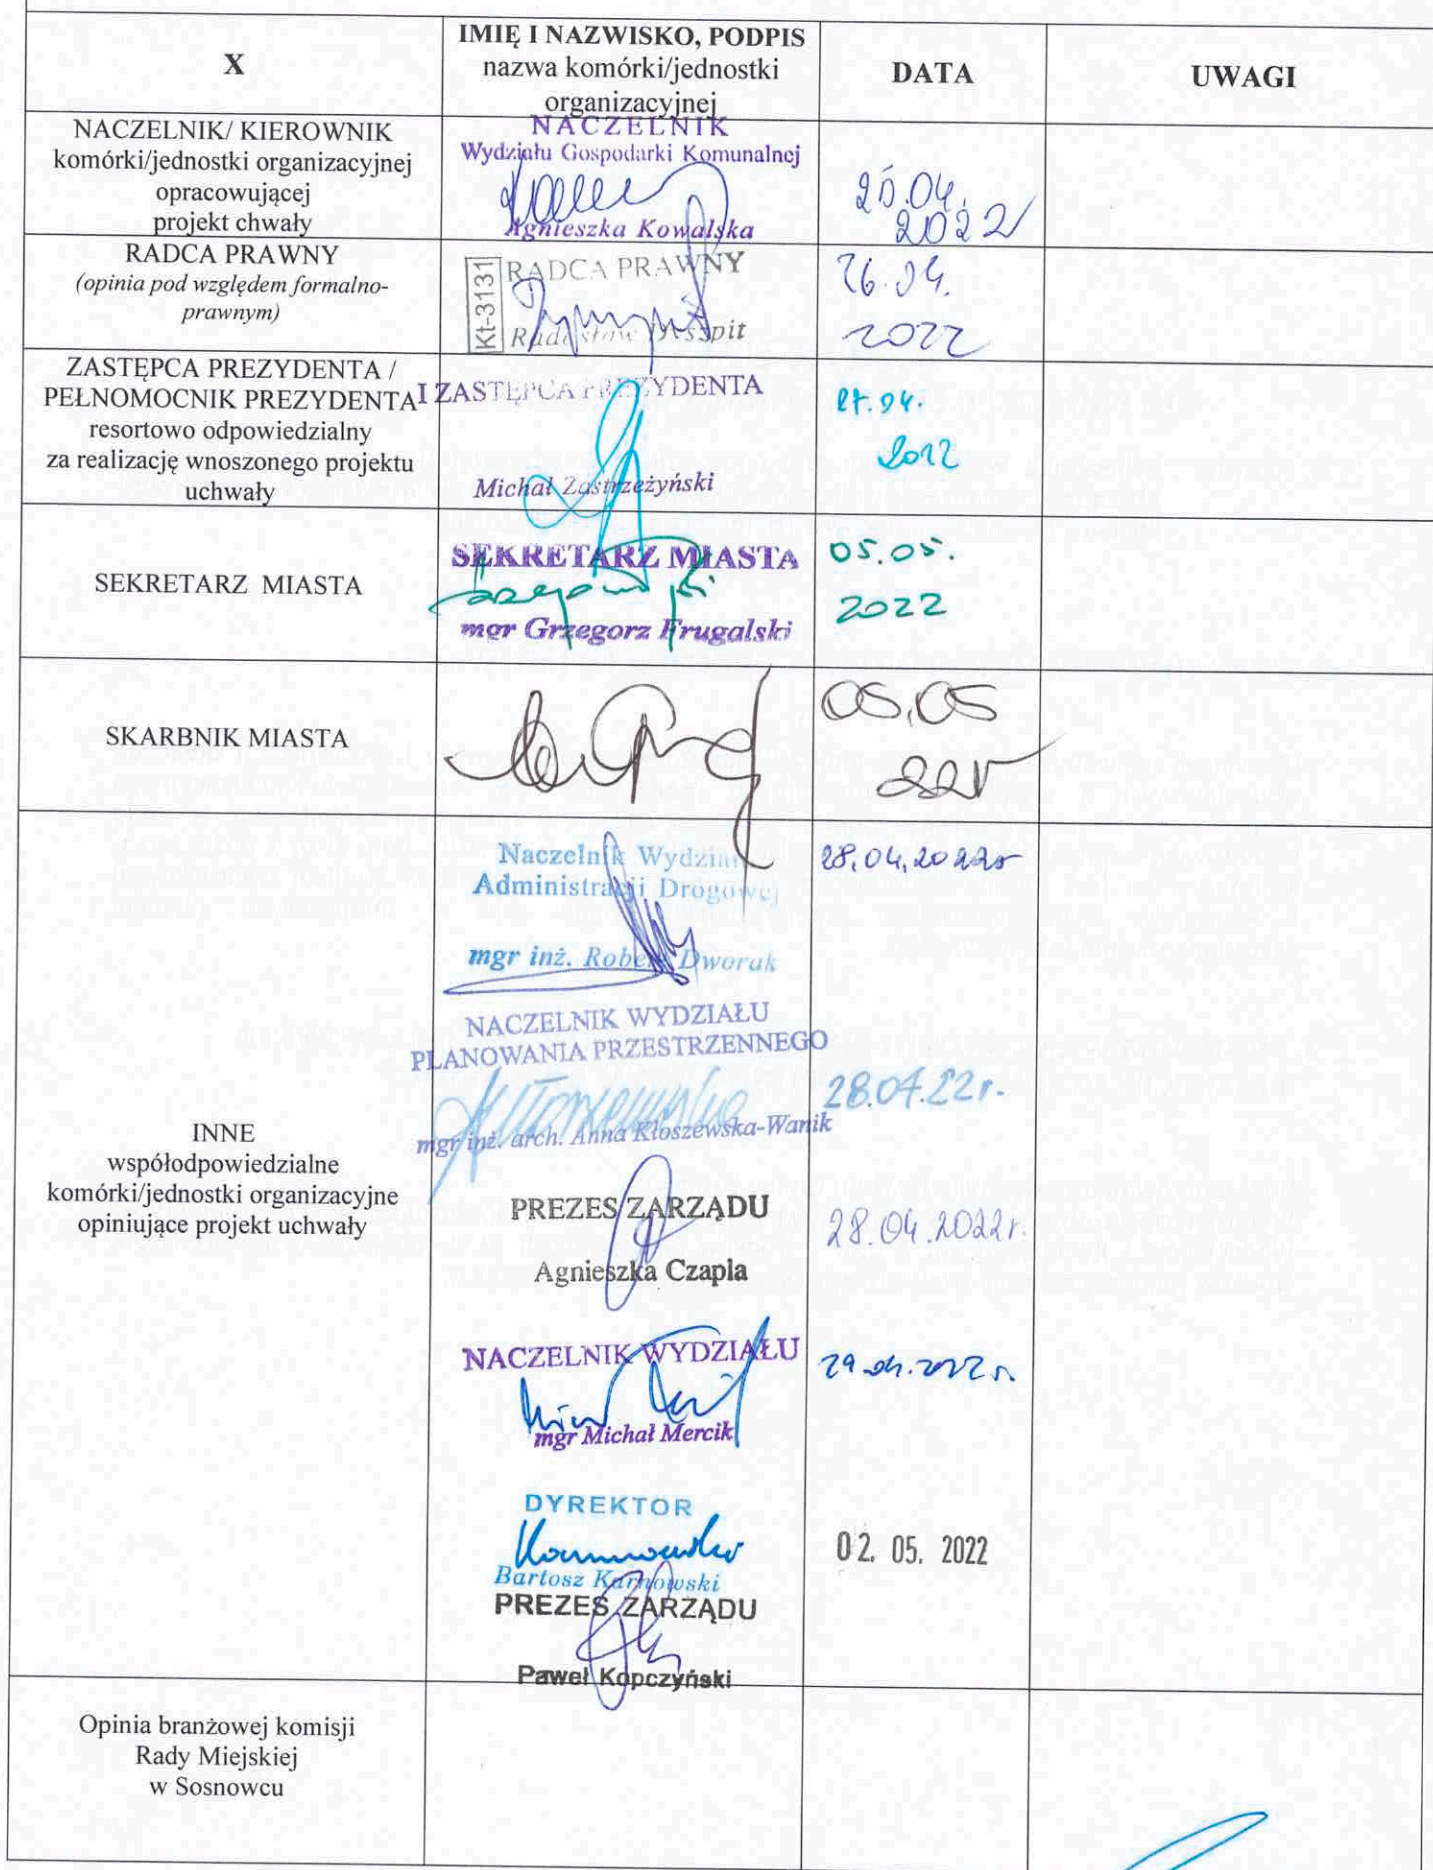 X
IMIĘ I NAZWISKO, PODPIS
nazwa komórki/jednostki
organizacyjnej
DATA
UWAGI
NACZELNIK/ KIEROWNIK
komórki/jednostki organizacyjnej
opracowującej
projekt chwały
NACZELNIK
Wydziału Gospodarki Komunalnej
Agnieszka Kowalska
26.04.
2022
RADCA PRAWNY
(opinia pod względem formalno-
prawnym)
Kt-3131
RADCA PRAWNY
26.04.
2022
ZASTĘPCA PREZYDENTA /
PEŁNOMOCNIK PREZYDENTA
resortowo odpowiedzialny
za realizację wnoszonego projektu
uchwały
I ZASTĘPCA PREZYDENTA
Michał Zastrzeżyński
27.04.
2022
SEKRETARZ MIASTA
SEKRETARZ MIASTA
mgr Grzegorz Frugalski
05.05.
2022
SKARBNIK MIASTA
05.05
22r
INNE
współodpowiedzialne
komórki/jednostki organizacyjne
opiniujące projekt uchwały
Naczelnik Wydziału
Administracji Drogowej
mgr inż. Robert Dworak
28.04.2022r
NACZELNIK WYDZIAŁU
PLANOWANIA PRZESTRZENNEGO
mgr inż. arch. Anna Kłoszewska-Wanik
28.04.22r.
PREZES ZARZĄDU
Agnieszka Czapla
28.04.2022r.
NACZELNIK WYDZIAŁU
mgr Michał Mercik
29.04.2022r.
DYREKTOR
Bartosz Karnowski
02. 05. 2022
PREZES ZARZĄDU
Paweł Kopczyński
Opinia branżowej komisji
Rady Miejskiej
w Sosnowcu